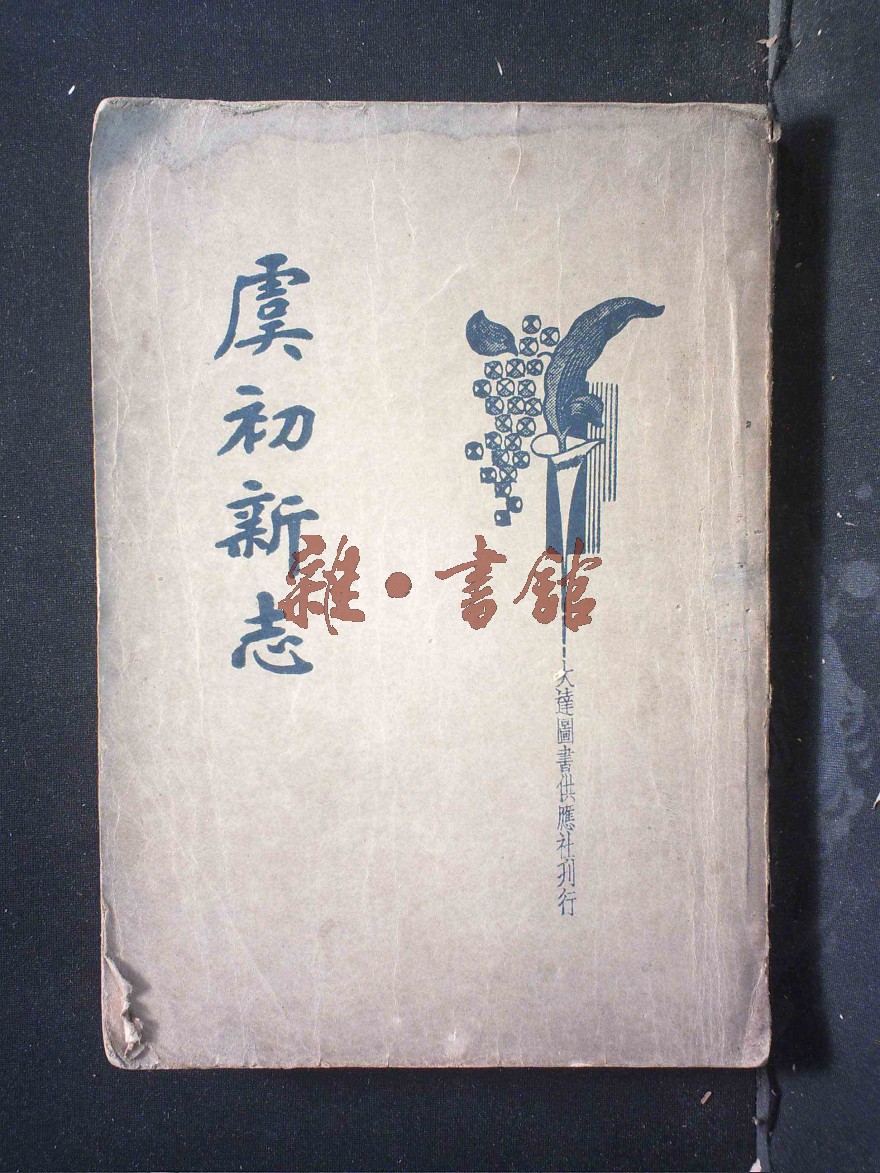 虞初新志
大達圖書供應社刋行
雜·書館